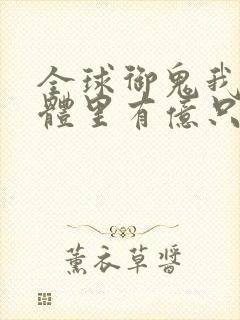 全球御鬼我
體里有億只
薰衣草醬